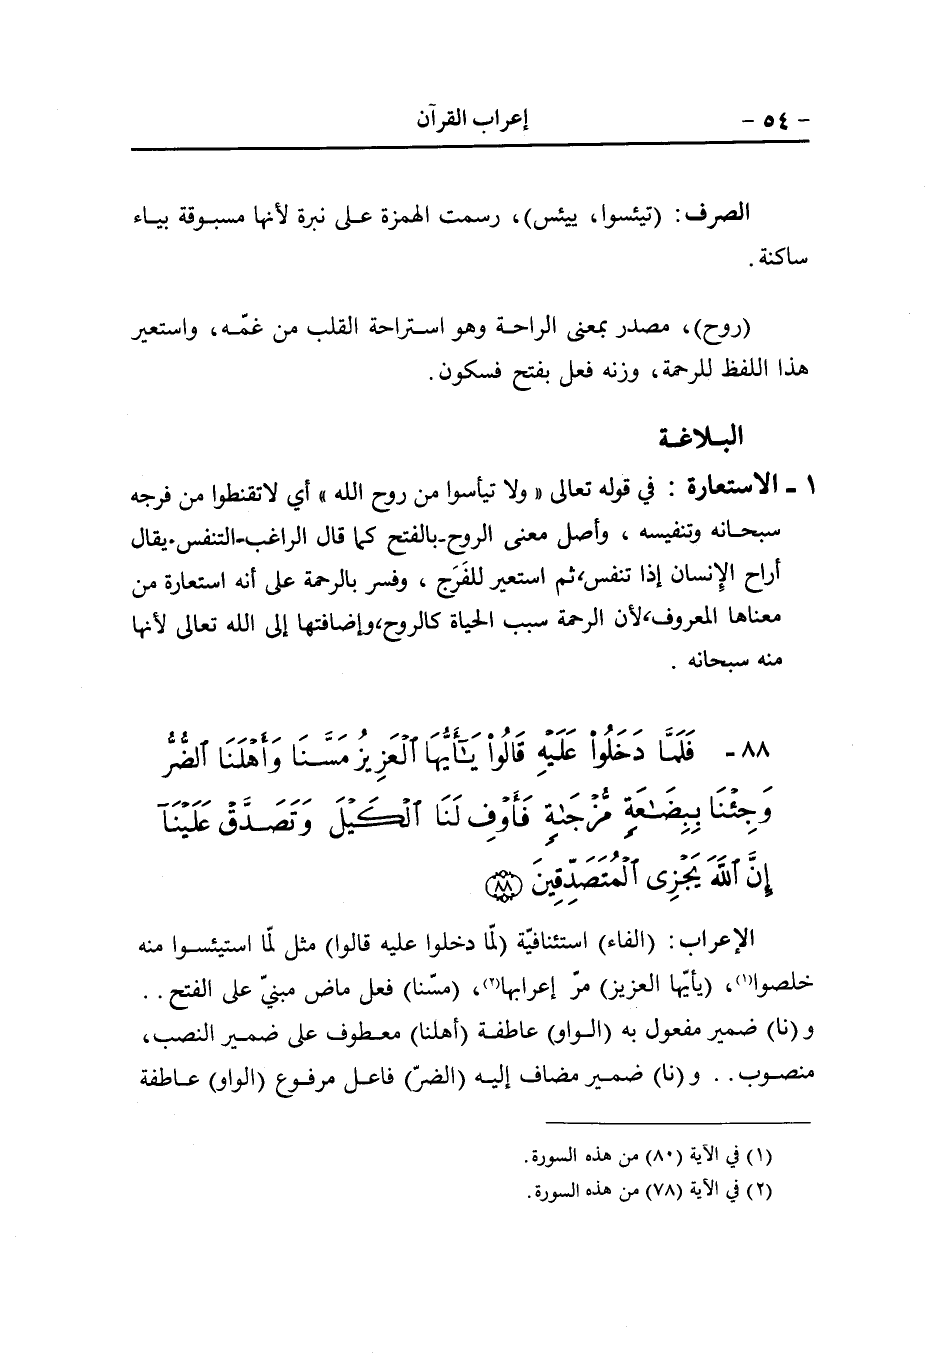 - ٥٤ - إعراب القرآن
الصرف: (تيئسوا، ييئس)، رسمت الهمزة على نبرة لأنها مسبوقة بياء
ساكنة.
(روح)، مصدر بمعنى الراحة وهو استراحة القلب من غمّه، واستعير
هذا اللفظ للرحمة، وزنه فعل بفتح فسكون.
البلاغة
١ - الاستعارة : في قوله تعالى « ولا تيأسوا من روح الله » أي لاتقنطوا من فرجه
سبحانه وتنفيسه ، وأصل معنى الروح-بالفتح كما قال الراغب-التنفس.يقال
أراح الإنسان إذا تنفس،ثم استعير للفَرَج ، وفسر بالرحمة على أنه استعارة من
معناها المعروف،لأن الرحمة سبب الحياة كالروح،وإضافتها إلى الله تعالى لأنها
منه سبحانه .
٨٨ - فَلَمَّا دَخَلُوا۟ عَلَيْهِ قَالُوا۟ يَـٰٓأَيُّهَا ٱلْعَزِيزُ مَسَّنَا وَأَهْلَنَا ٱلضُّرُّ
وَجِئْنَا بِبِضَـٰعَةٍ مُّزْجَىٰةٍ فَأَوْفِ لَنَا ٱلْكَيْلَ وَتَصَدَّقْ عَلَيْنَآ
إِنَّ ٱللَّهَ يَجْزِى ٱلْمُتَصَدِّقِينَ ٨٨
الإعراب: (الفاء) استئنافيّة (لمّا دخلوا عليه قالوا) مثل لمّا استيئسوا منه
خلصوا(١)، (يأيّها العزيز) مرّ إعرابها(٢)، (مسّنا) فعل ماض مبنيّ على الفتح..
و (نا) ضمير مفعول به (الواو) عاطفة (أهلنا) معطوف على ضمير النصب،
منصوب.. و (نا) ضمير مضاف إليه (الضرّ) فاعل مرفوع (الواو) عاطفة
(١) في الآية (٨٠) من هذه السورة.
(٢) في الآية (٧٨) من هذه السورة.